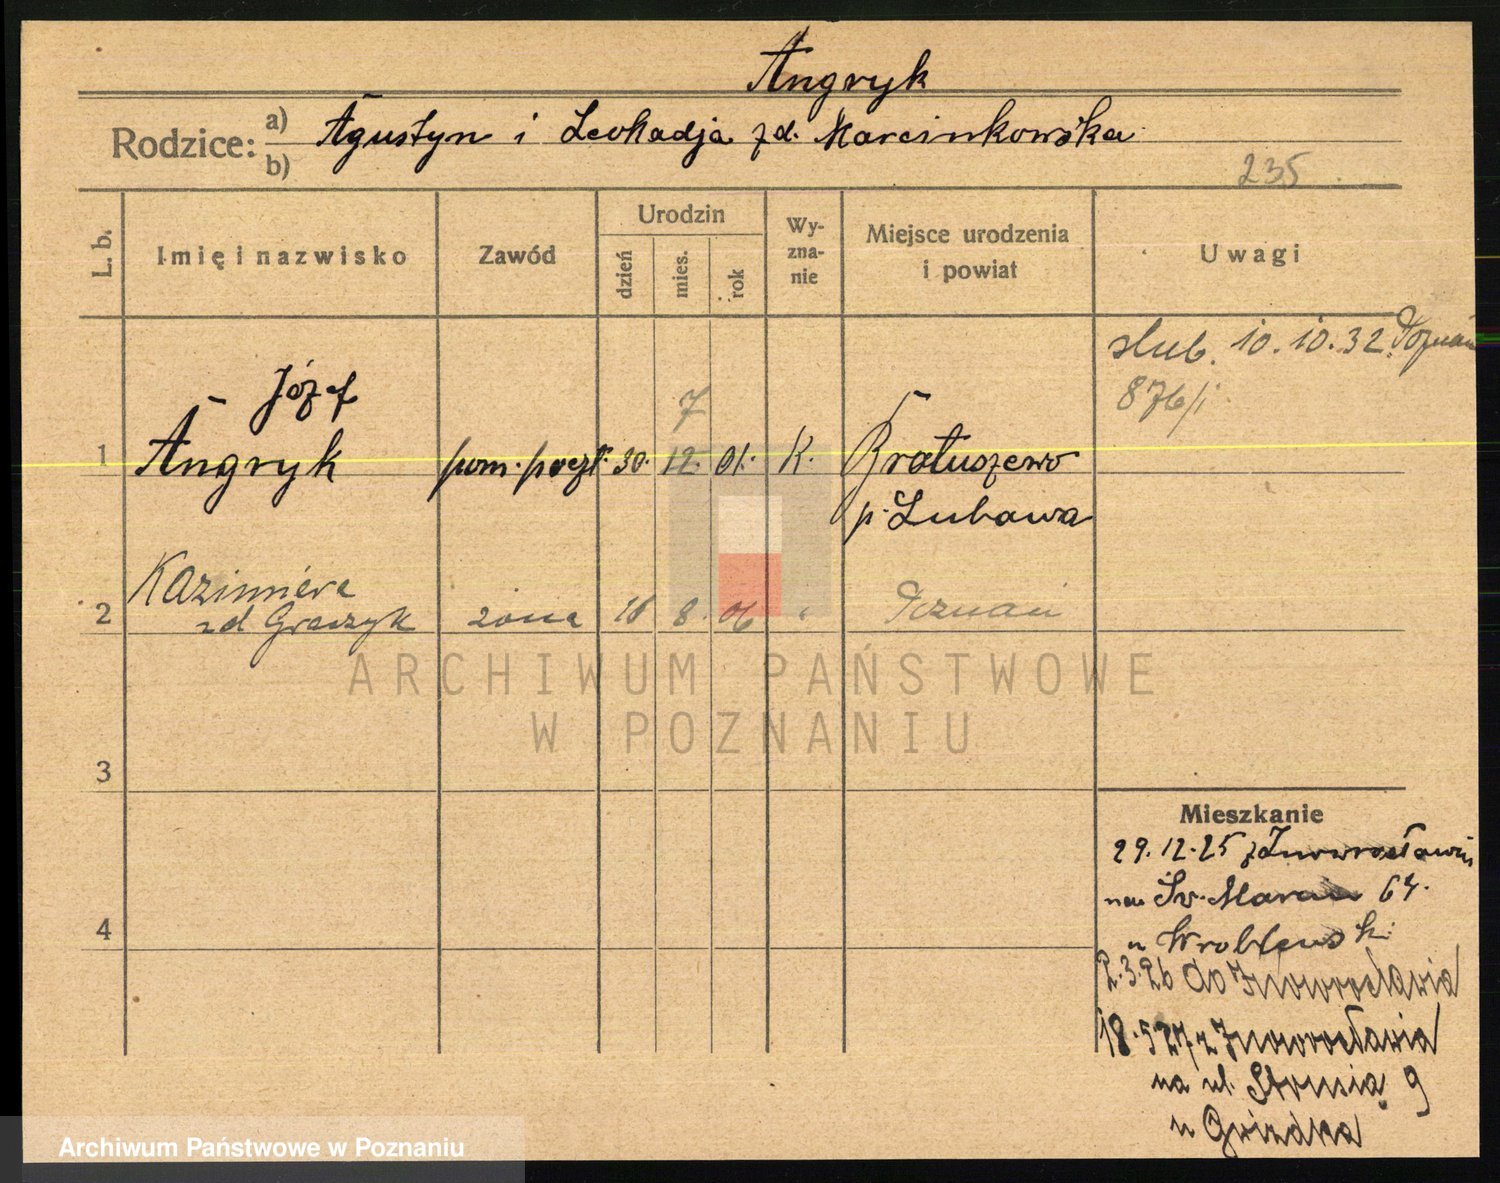 Angryk
Rodzice: a) Agustyn i Leokadja z d. Marcinkowska
b)
235
L. b. Imię i nazwisko Zawód Urodzin dzień mies. rok Wy-zna-nie Miejsce urodzenia i powiat Uwagi
ślub. 10.10.32. Poznań
876/i
Józef 7
1 Angryk pom. poczt. 30. 12. 01. K. Bratuszewo
p. Lubawa
Kazimiera
2 zd Graczyk żona 16 8. 06 " Poznań
ARCHIWUM PAŃSTWOWE
W POZNANIU
3
Mieszkanie
29.12.25 z Inowrocławia
na Św. Marcin 64.
4
u Wroblewski
2.3.26 do Inowrocławia
18.5 27 z Inowrocławia
na ul. Strusia 9
u
Archiwum Państwowe w Poznaniu